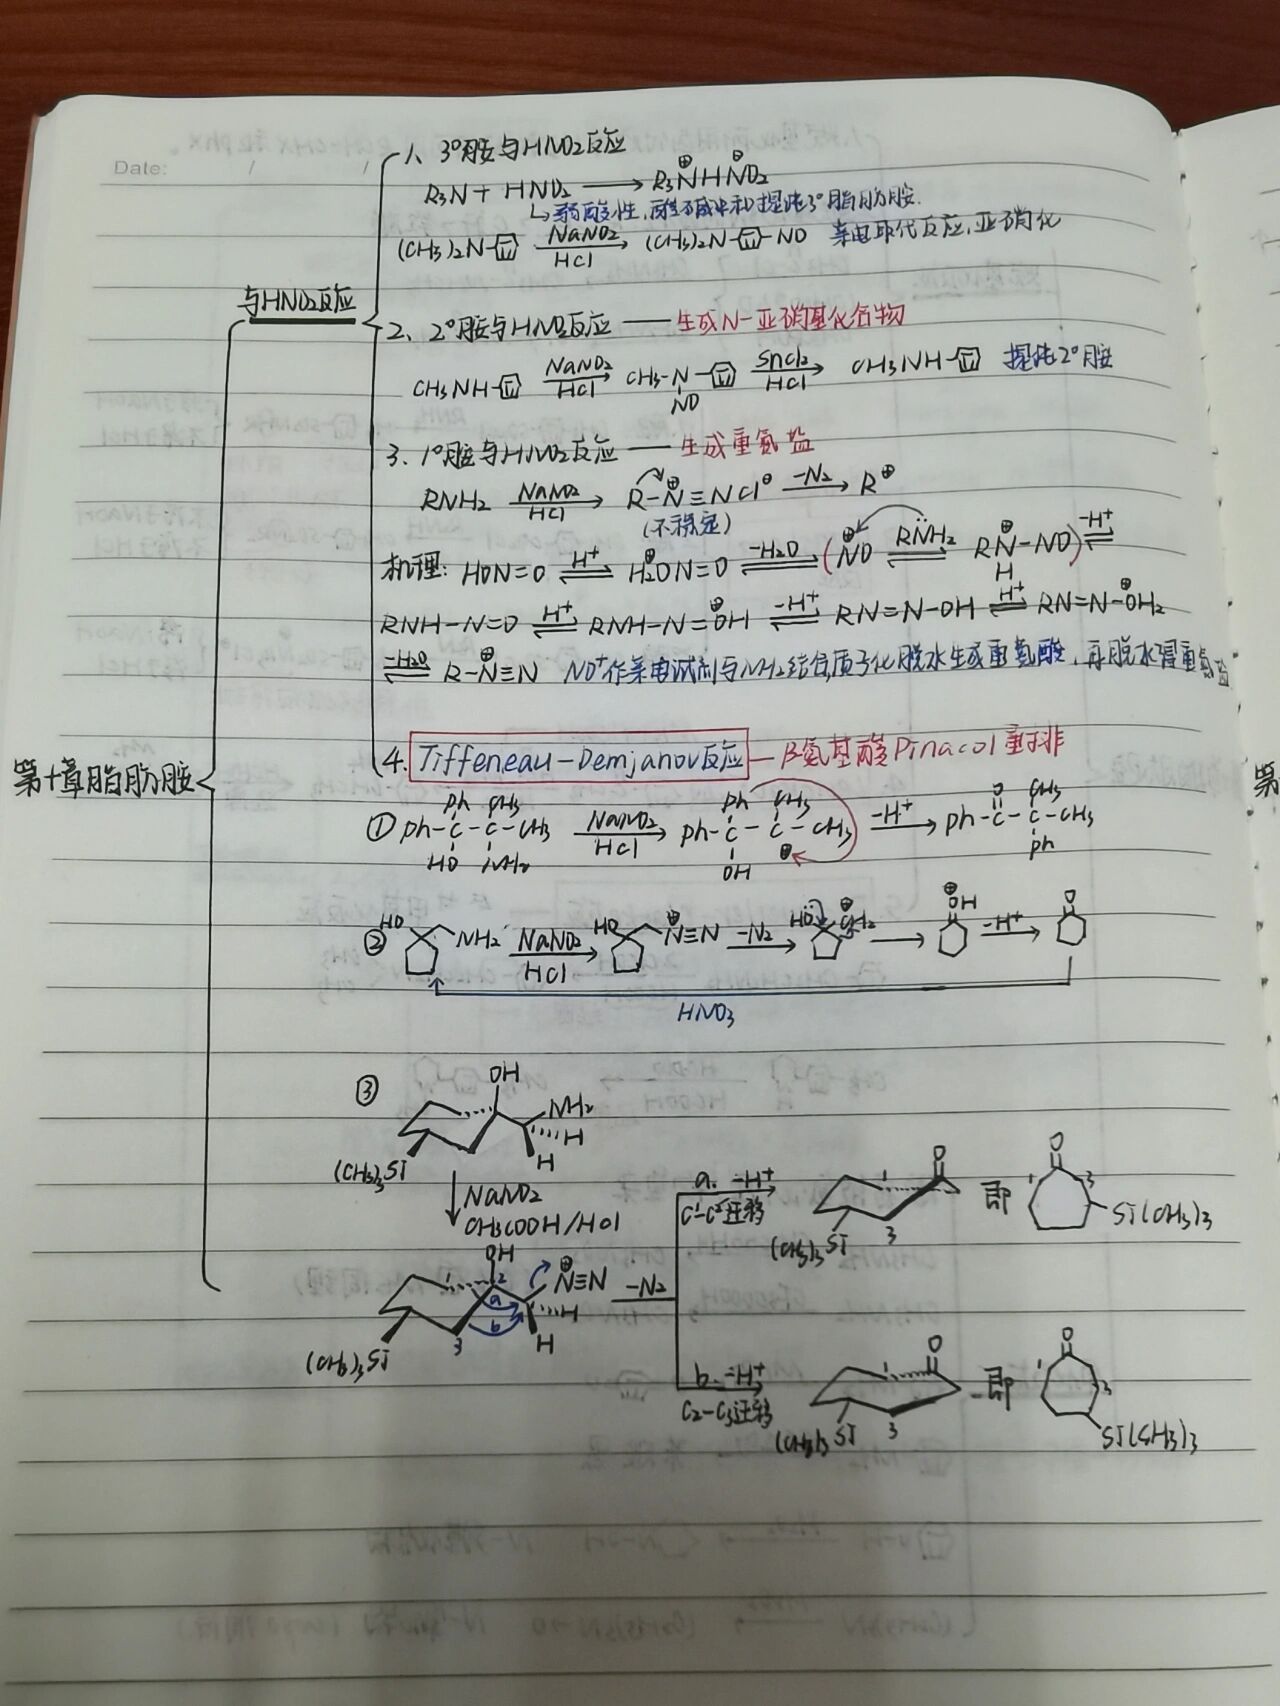 Date: / /
第十章脂肪胺
与HNO₂反应
1、3°胺与HNO₂反应
R₃N + HNO₂ → R₃N⊕HNO₂⊖
↳弱酸性,酸碱中和提纯3°脂肪胺.
(CH₃)₂N- NaNO₂ HCl → (CH₃)₂N- -NO 亲电取代反应,亚硝化
2、2°胺与HNO₂反应 —— 生成N-亚硝基化合物
CH₃NH- NaNO₂ HCl → CH₃-N- NO SnCl₂ HCl → CH₃NH- 提纯2°胺
3、1°胺与HNO₂反应 —— 生成重氮盐
RNH₂ NaNO₂ HCl → R-N⊕≡NCl⊖ -N₂ → R⊕
(不稳定)
机理: HON=O H⁺ ⇌ H₂O⊕N=O -H₂O ⇌ (N⊕O RN̈H₂ ⇌ RN⊕-NO) H -H⁺ ⇌
RNH-N=O H⁺ ⇌ RNH-N=O⊕H -H⁺ ⇌ RN=N-OH H⁺ ⇌ RN=N-O⊕H₂
-H₂O ⇌ R-N⊕≡N NO⁺作亲电试剂与NH₂结合,质子化脱水生成重氮酸,再脱水得重氮盐
4. Tiffeneau-Demjanov反应 — β-氨基醇Pinacol重排
① Ph CH₃ Ph-C-C-CH₃ HO NH₂ NaNO₂ HCl → Ph CH₃ Ph-C-C-CH₃ OH ⊕ -H⁺ → O CH₃ Ph-C-C-CH₃ Ph
② HO NH₂ NaNO₂ HCl → HO N⊕≡N -N₂ → HÖ ⊕CH₂ → ⊕OH -H⁺ → O
HNO₃
③ OH NH₂ H H (CH₃)₃Si
NaNO₂
CH₃COOH/HCl
OH N⊕≡N 1 2 3 a b H H (CH₃)₃Si -N₂
a. -H⁺ C¹-C²迁移 → O 1 3 (CH₃)₃Si 即 O 1 3 Si(CH₃)₃
b. -H⁺ C₂-C₃迁移 → O 1 3 (CH₃)₃Si 即 O 1 3 Si(CH₃)₃
第